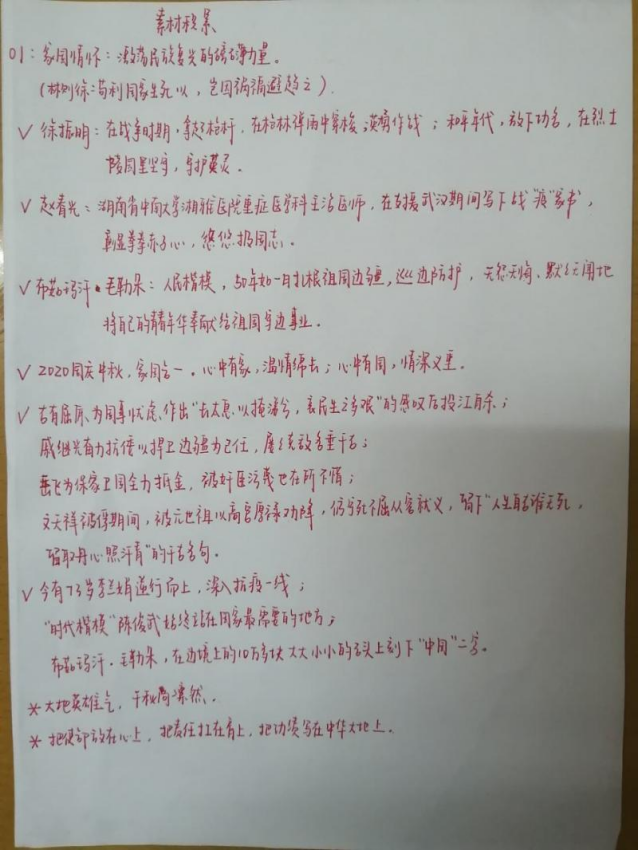 素材积累
01：家国情怀：激荡民族复兴的磅礴力量。
（林则徐：苟利国家生死以，岂因祸福避趋之）
✓ 徐振明：在战争时期，拿起枪杆，在枪林弹雨中穿梭，英勇作战；和平年代，放下功名，在烈士
陵园里坚守，守护英灵。
✓ 赵春光：湖南省中南大学湘雅医院重症医学科主治医师，在支援武汉期间写下战“疫”家书，
彰显拳拳赤子心，悠悠报国志。
✓ 布茹玛汗·毛勒朵：人民楷模，50年如一日扎根祖国边疆，巡边防护，无怨无悔、默默无闻地
将自己的青春年华奉献给祖国守边事业。
✓ 2020国庆中秋，家国合一。心中有家，温情绵长；心中有国，情深义重。
✓ 古有屈原、为国事忧虑、作出“长太息以掩涕兮，哀民生之多艰”的感叹后投江自杀；
戚继光奋力抗倭以捍卫边疆为己任，屡立战功名垂千古；
岳飞为保家卫国全力抵金，被奸臣污蔑也在所不惜；
文天祥被俘期间，被元世祖以高官厚禄劝降，仍宁死不屈从容就义，留下“人生自古谁无死，
留取丹心照汗青”的千古名句。
✓ 今有73岁李兰娟逆行而上，深入抗疫一线；
“时代楷模”陈俊武始终站在国家最需要的地方；
布茹玛汗·毛勒朵，在边境上的10万多块大大小小的石头上刻下“中国”二字。
* 天地英雄气，千秋尚凛然。
* 把使命放在心上，把责任扛在肩上，把功绩写在中华大地上。